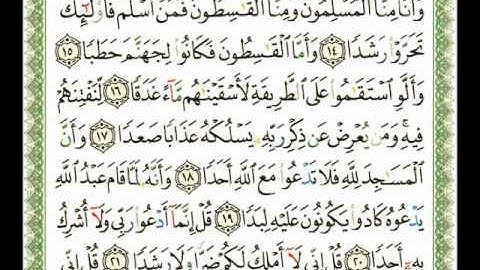 وَأَنَّا مِنَّا ٱلْمُسْلِمُونَ وَمِنَّا ٱلْقَٰسِطُونَ فَمَنْ أَسْلَمَ فَأُو۟لَٰٓئِكَ
تَحَرَّوْا۟ رَشَدًا ١٤ وَأَمَّا ٱلْقَٰسِطُونَ فَكَانُوا۟ لِجَهَنَّمَ حَطَبًا ١٥
وَأَلَّوِ ٱسْتَقَٰمُوا۟ عَلَى ٱلطَّرِيقَةِ لَأَسْقَيْنَٰهُم مَّآءً غَدَقًا ١٦ لِّنَفْتِنَهُمْ
فِيهِ ۚ وَمَن يُعْرِضْ عَن ذِكْرِ رَبِّهِۦ يَسْلُكْهُ عَذَابًا صَعَدًا ١٧ وَأَنَّ
ٱلْمَسَٰجِدَ لِلَّهِ فَلَا تَدْعُوا۟ مَعَ ٱللَّهِ أَحَدًا ١٨ وَأَنَّهُۥ لَمَّا قَامَ عَبْدُ ٱللَّهِ
يَدْعُوهُ كَادُوا۟ يَكُونُونَ عَلَيْهِ لِبَدًا ١٩ قُلْ إِنَّمَآ أَدْعُوا۟ رَبِّى وَلَآ أُشْرِكُ
بِهِۦٓ أَحَدًا ٢٠ قُلْ إِنِّى لَآ أَمْلِكُ لَكُمْ ضَرًّا وَلَا رَشَدًا ٢١ قُلْ إِنِّى